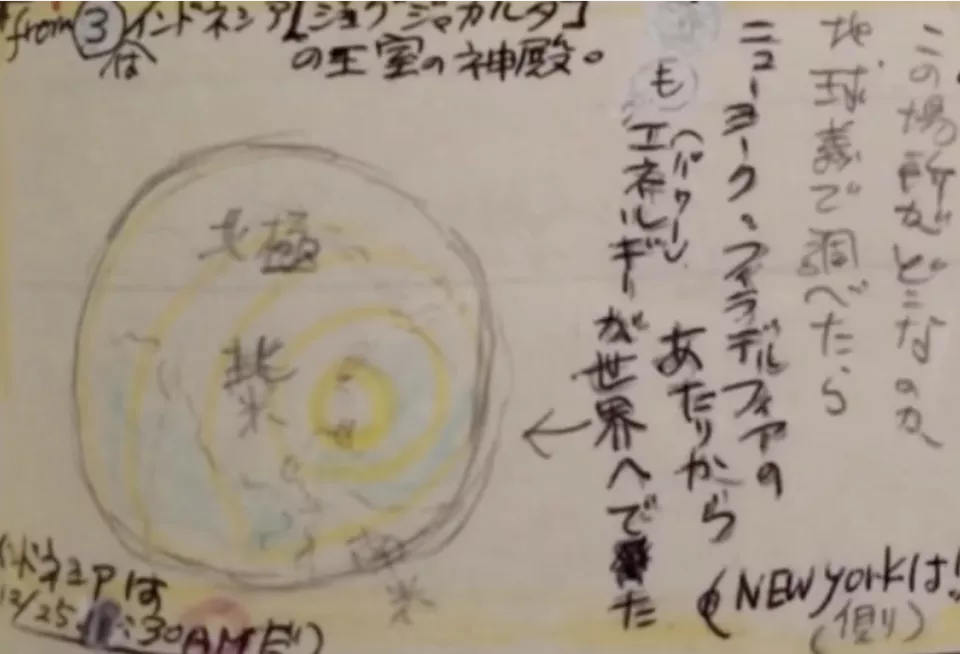 from ③ インドネシア【ジョグジャカルタ】
は の王室の神殿。
この場所がどこなのか、
地球義で調べたら
ニューヨーク、フィラデルフィアの
あたりから
も エネルギー(パワー)
が世界へでた
北極
北
米
南
米
インドネシアは
12/25 :30AMだ)
(NEW yorkは!
(側)